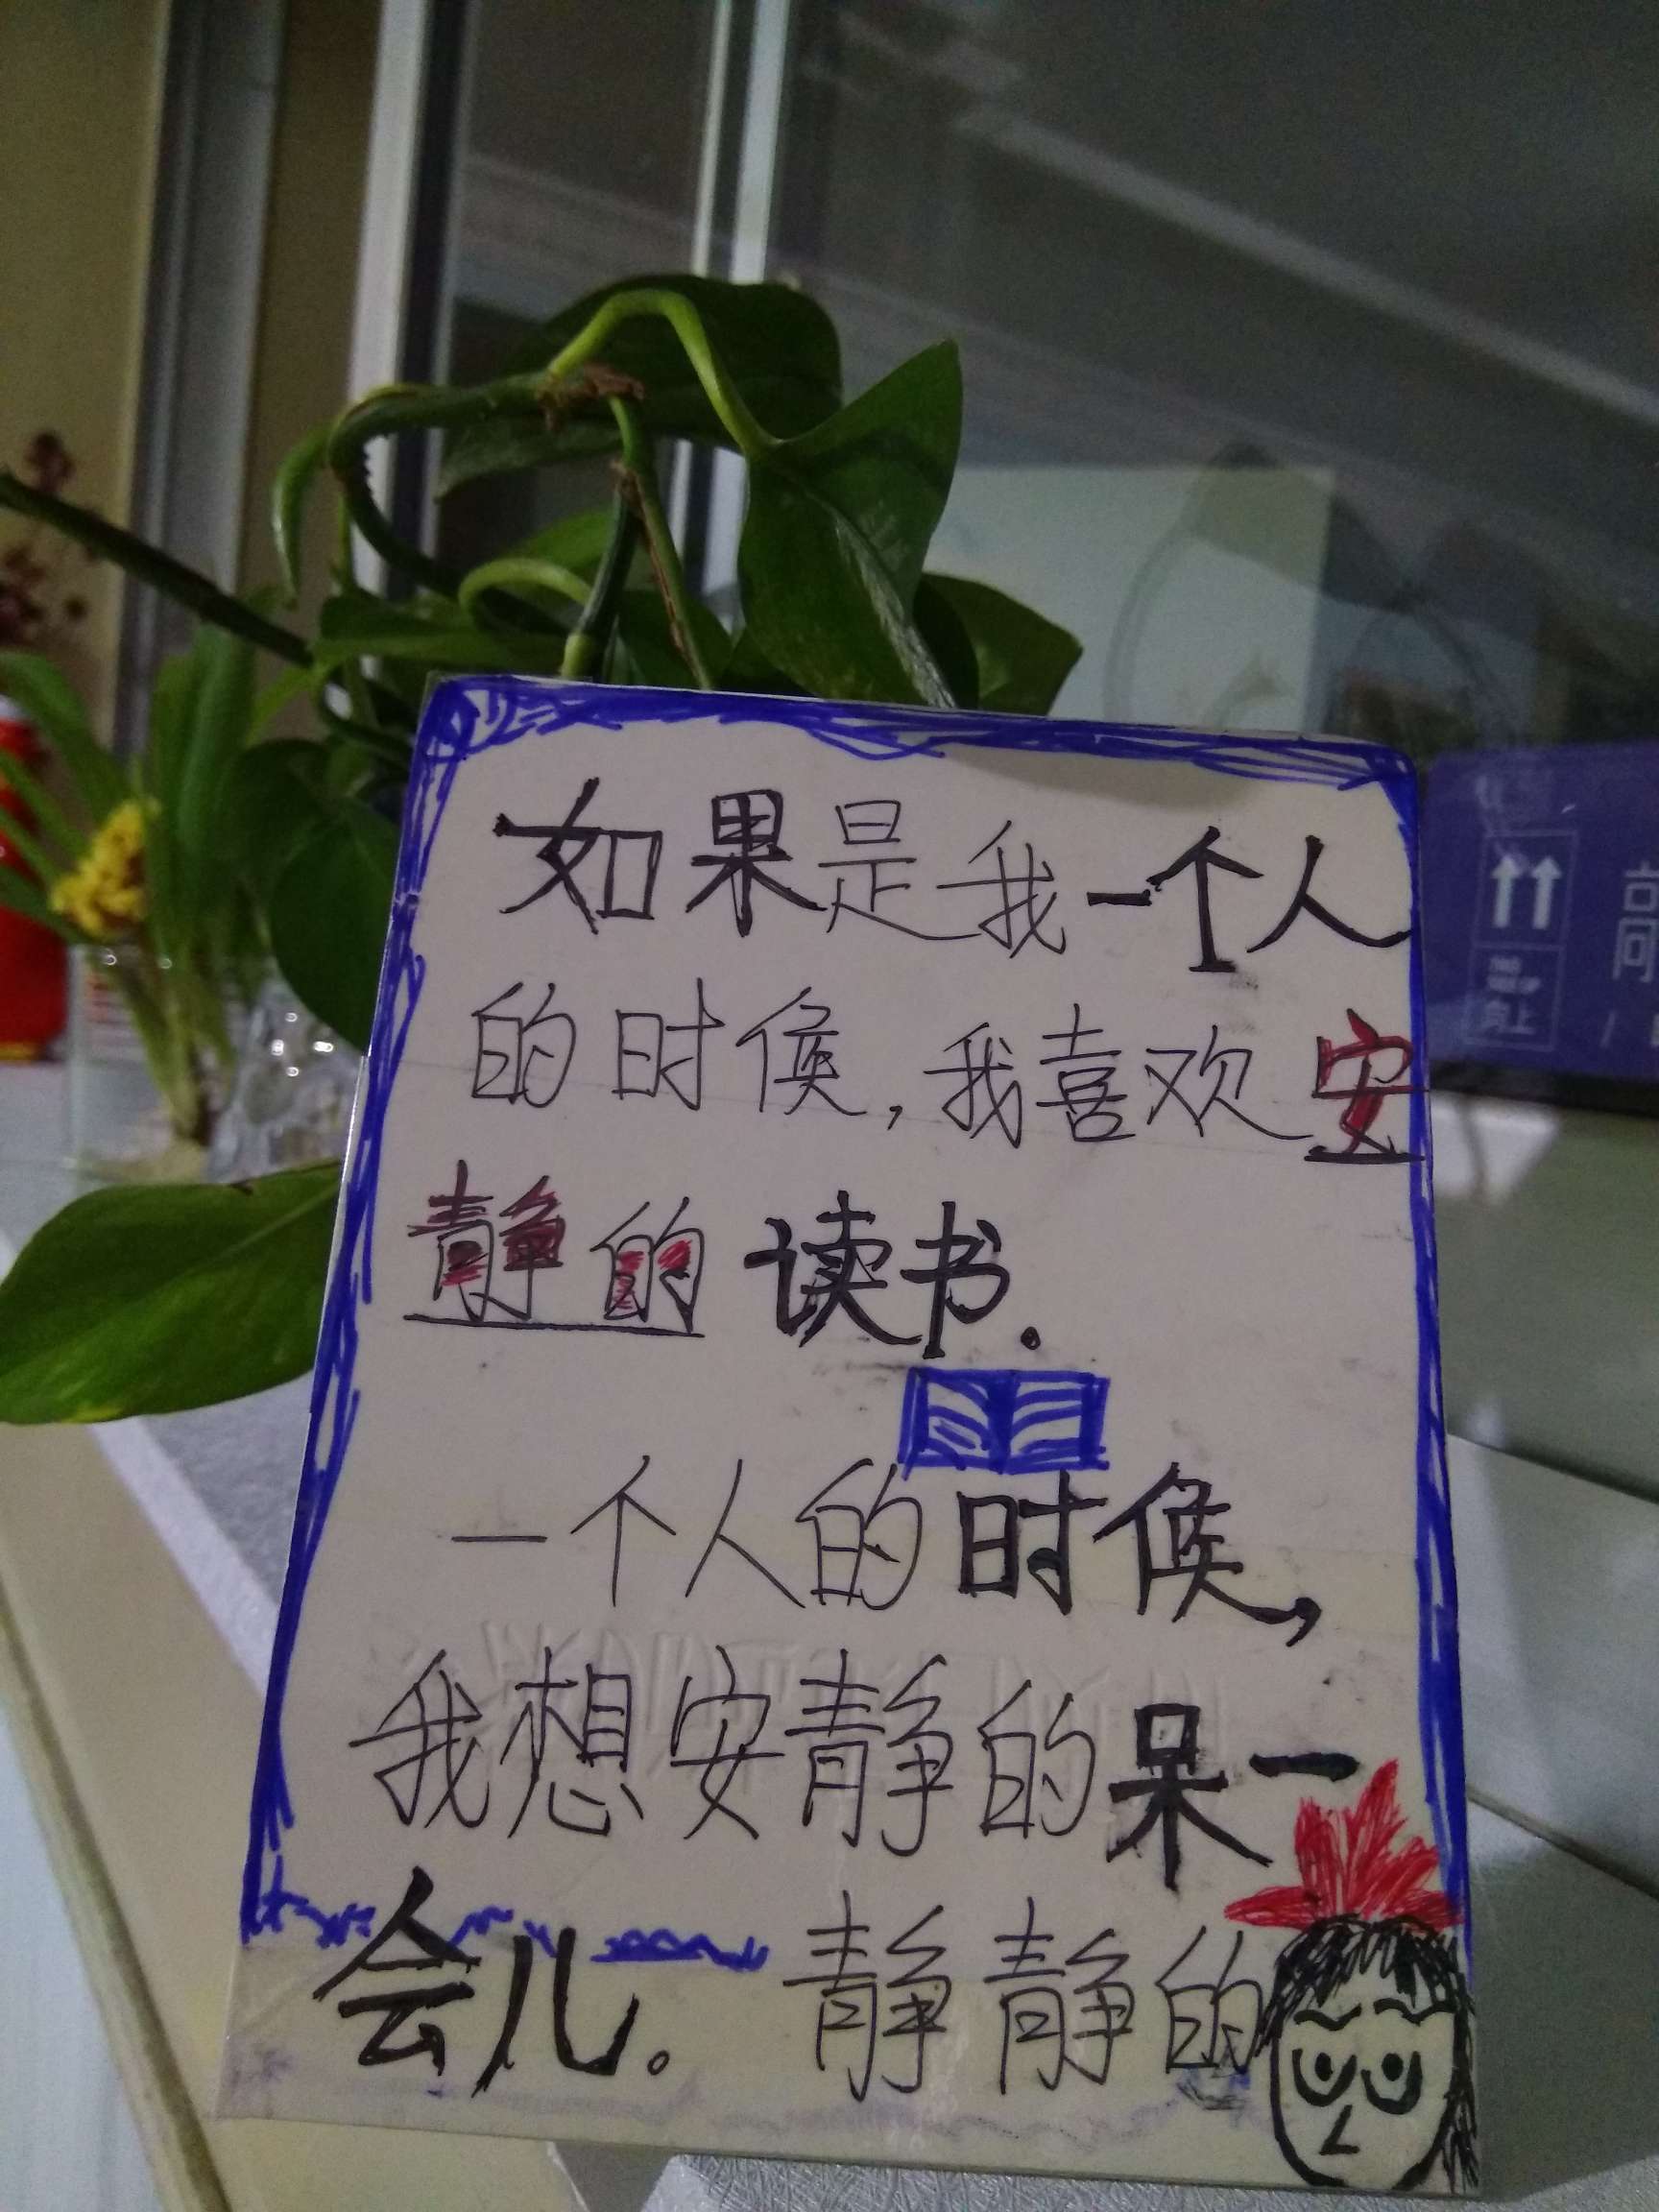 如果是我一个人
的时候,我喜欢安
静的读书.
一个人的时候,
我想安静的呆一
会儿。静静的
向上